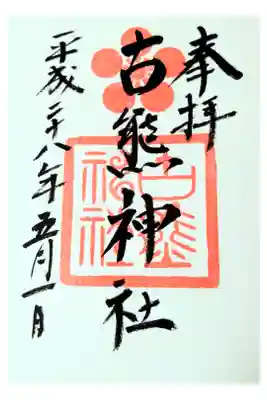 奉拝
古熊神社
平成二十八年五月一日
古熊神社